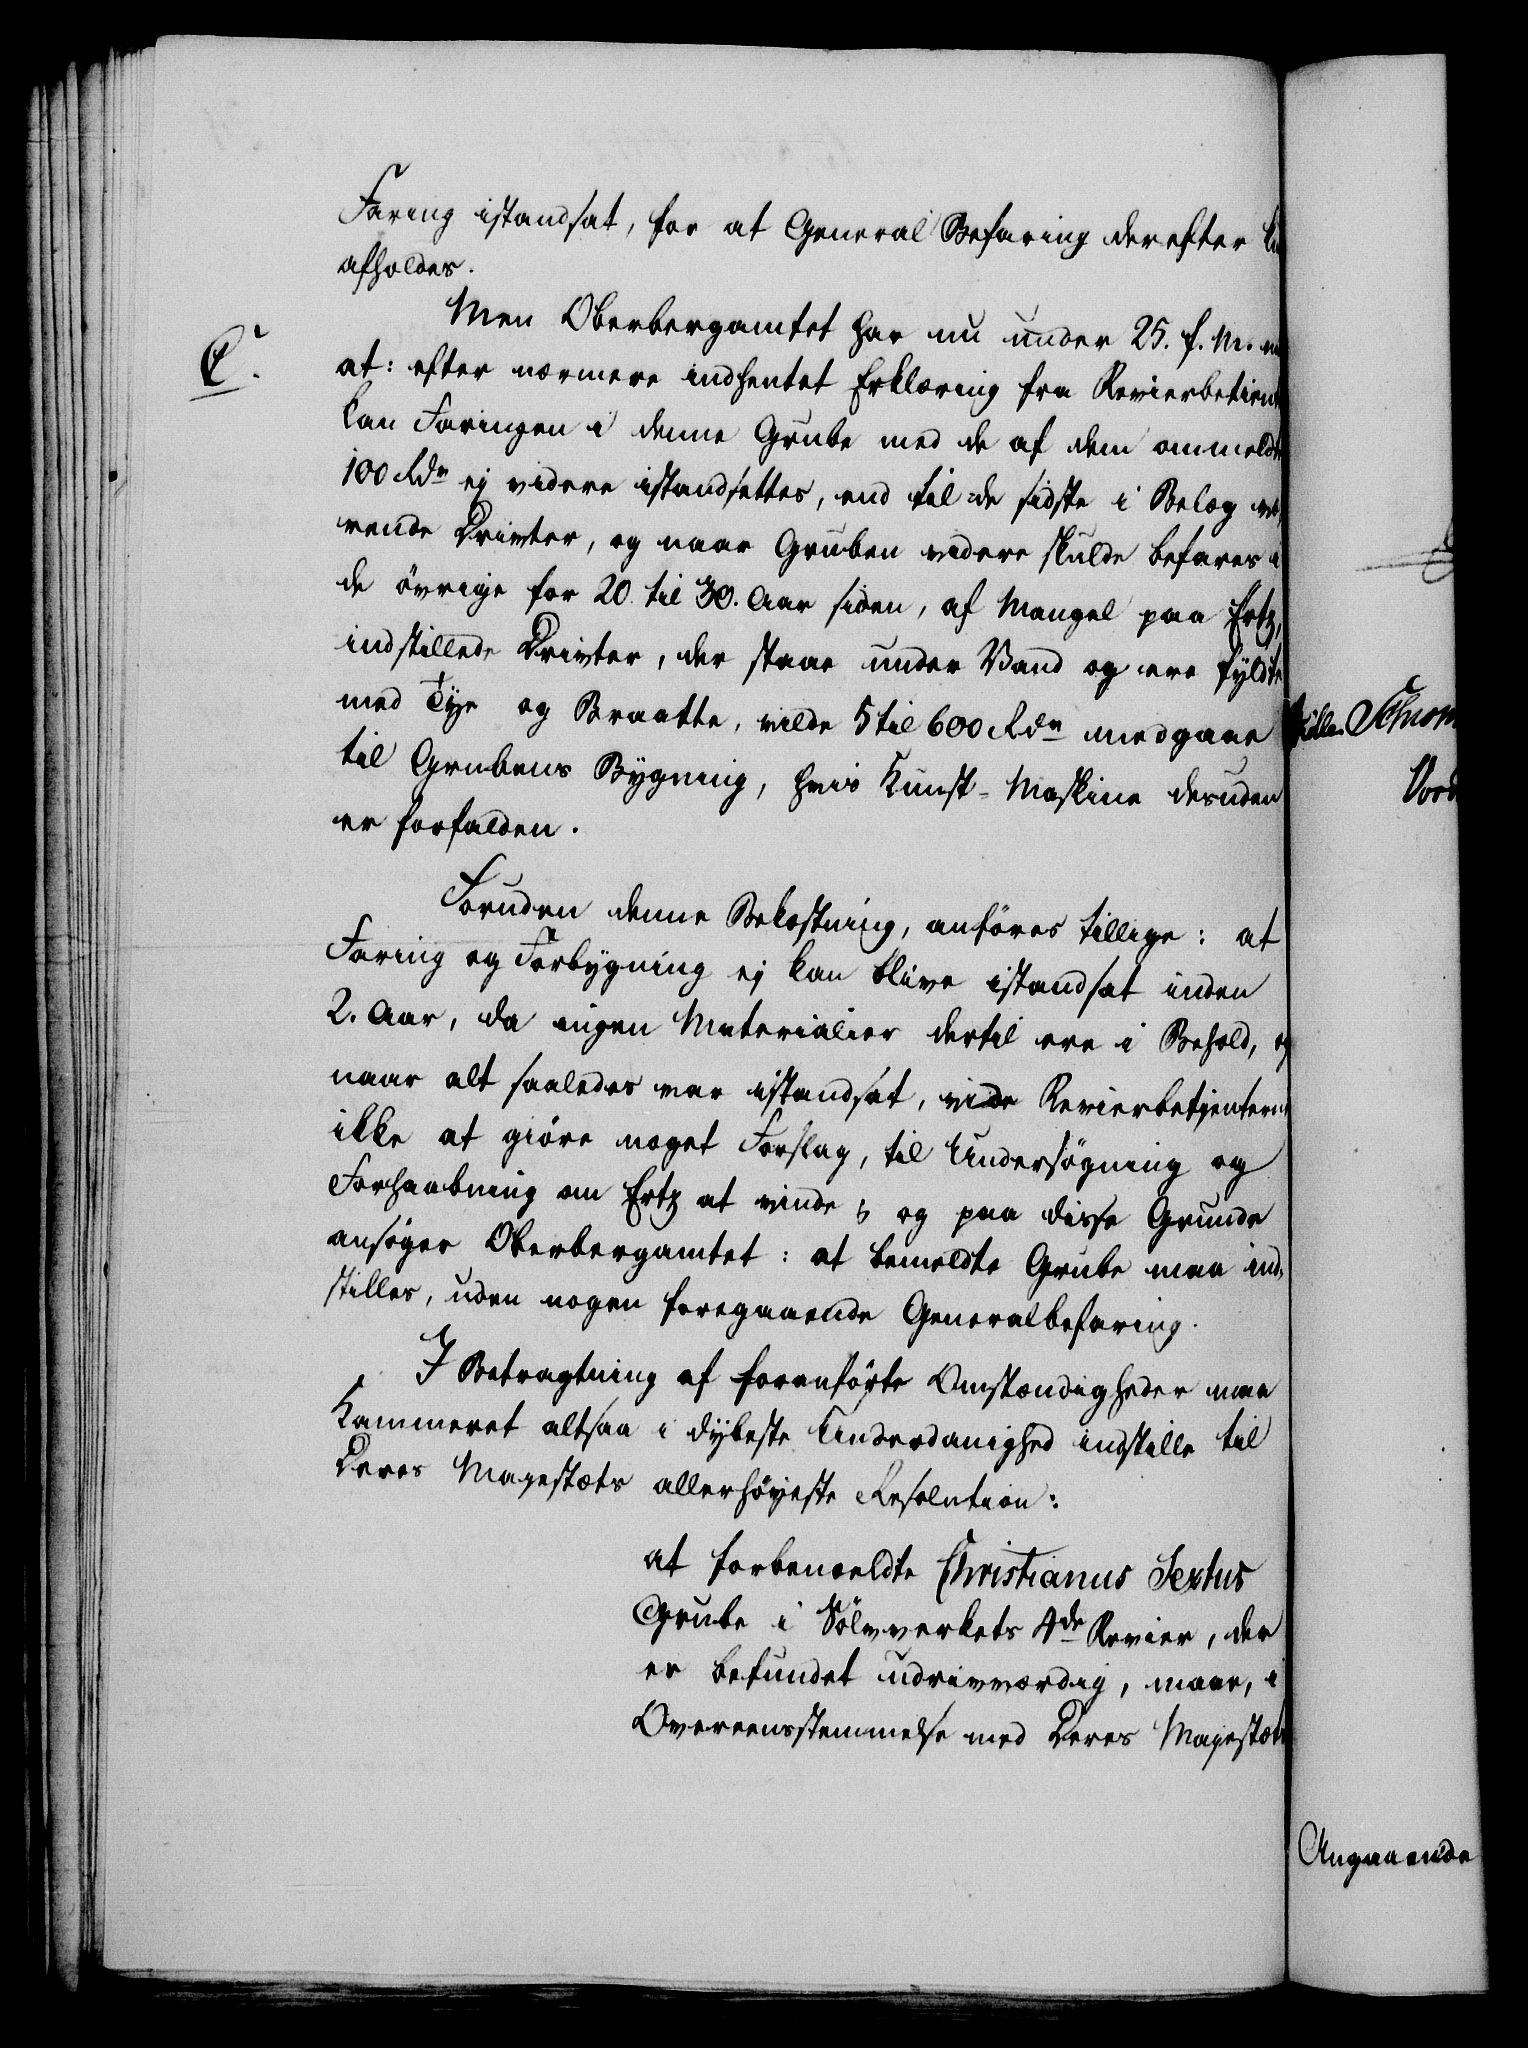 Faring istandsat, for at General Befaring derefter
afholdes.
Men Oberbergamtet har nu under 25. f. M.
C.
at: efter nærmere indhentet Erklæring fra Revierbetient
kan Faringen i denne Grube med de af dem ommeldte
100 Rdr ej videre istandsættes, end til de sidste i Belæg væ,
rende Drivter, og naar Gruben videre skulde befares i
de övrige for 20 til 30. Aar siden, af Mangel paa Ertz,
indstillede Drivter, der staae under Vand og ere fyldte
med Tÿe og Braatte, vilde 5 til 600 Rdr medgaae
til Grubens Bygning, hvis Kunst-Maskine desuden
er forfalden.
Foruden denne Bekostning, anföres tillige: at
Faring og Forbygning ej kan blive istandsat inden
2. Aar, da ingen Materialier dertil ere i Behold, og
naar alt saaledes var istandsat, vide Revierbetjenterne
ikke at giöre noget Forslag, til Undersögning og
Forhaabning om Ertz at vinde; og paa disse Grunde
ansöger Oberbergamtet: at bemeldte Grube maa ind,
stilles, uden nogen foregaaende Generalbefaring.
I Betragtning af foranförte Omstændigheder maa
Kammeret altsaa i dybeste Underdanighed indstille til
Deres Majestæts allerhöyeste Resolution:
at forbemeldte Christianus Sextus
Grube i Sölvverkets 4de Revier, der
er befundet udrivværdig, maae, i
Overeensstemmelse med Deres Majestæts
Angaaende